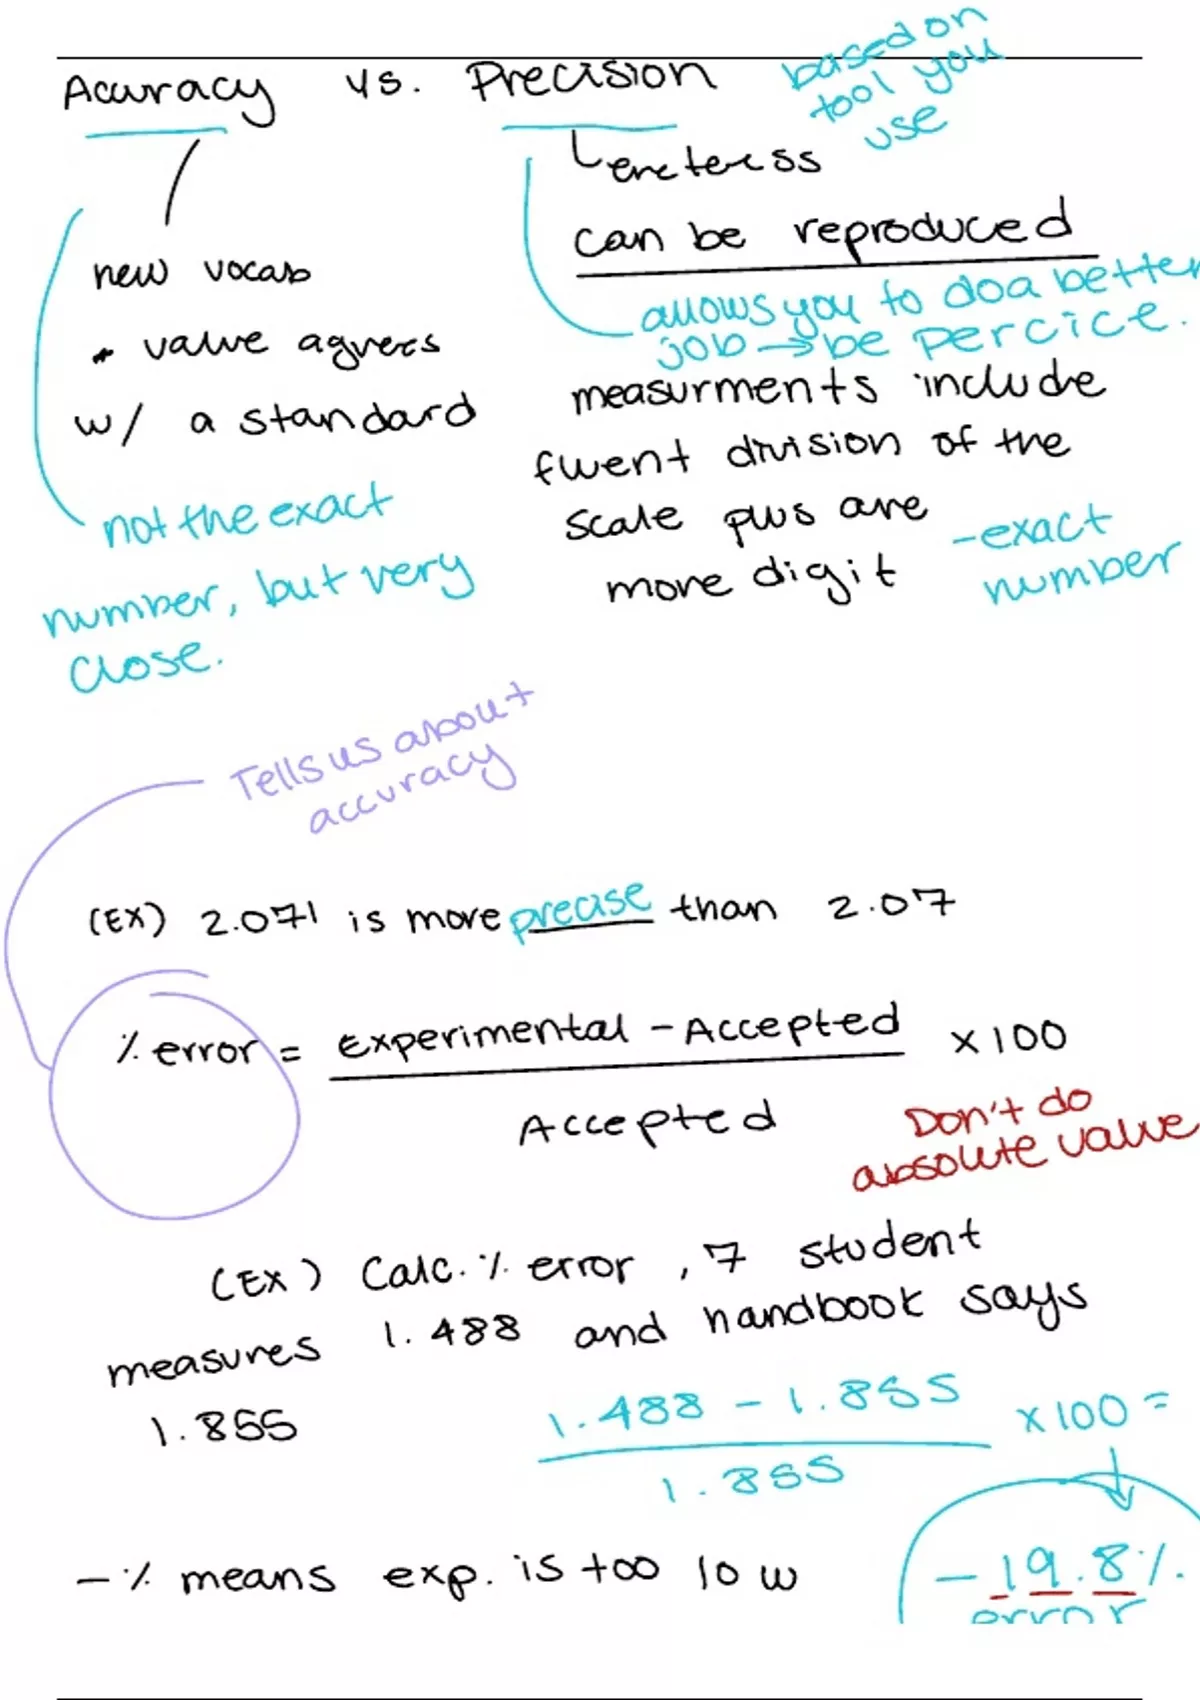 Accuracy vs. Precision
based on
tool you
use
new vocab
* value agrees
w/ a standard
not the exact
number, but very
close.
can be reproduced
allows you to do a better
job → be percice.
measurments include
division of the
scale plus
more digit
- exact
number
Tells us about
accuracy
(EX) 2.071 is more precise than 2.07
% error = Experimental - Accepted x 100
Accepted
Don't do
absolute value
(EX) Calc. % error, 7 student
measures 1.488 and handbook says
1.855
1.488 - 1.855 x 100 =
1.855
- % means exp. is too low
- 19.8%.
error